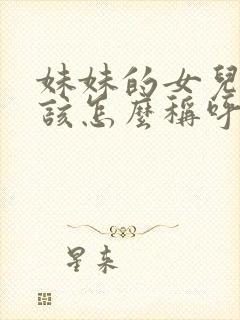 妹妹的女兒
該怎麼稱呼
星來